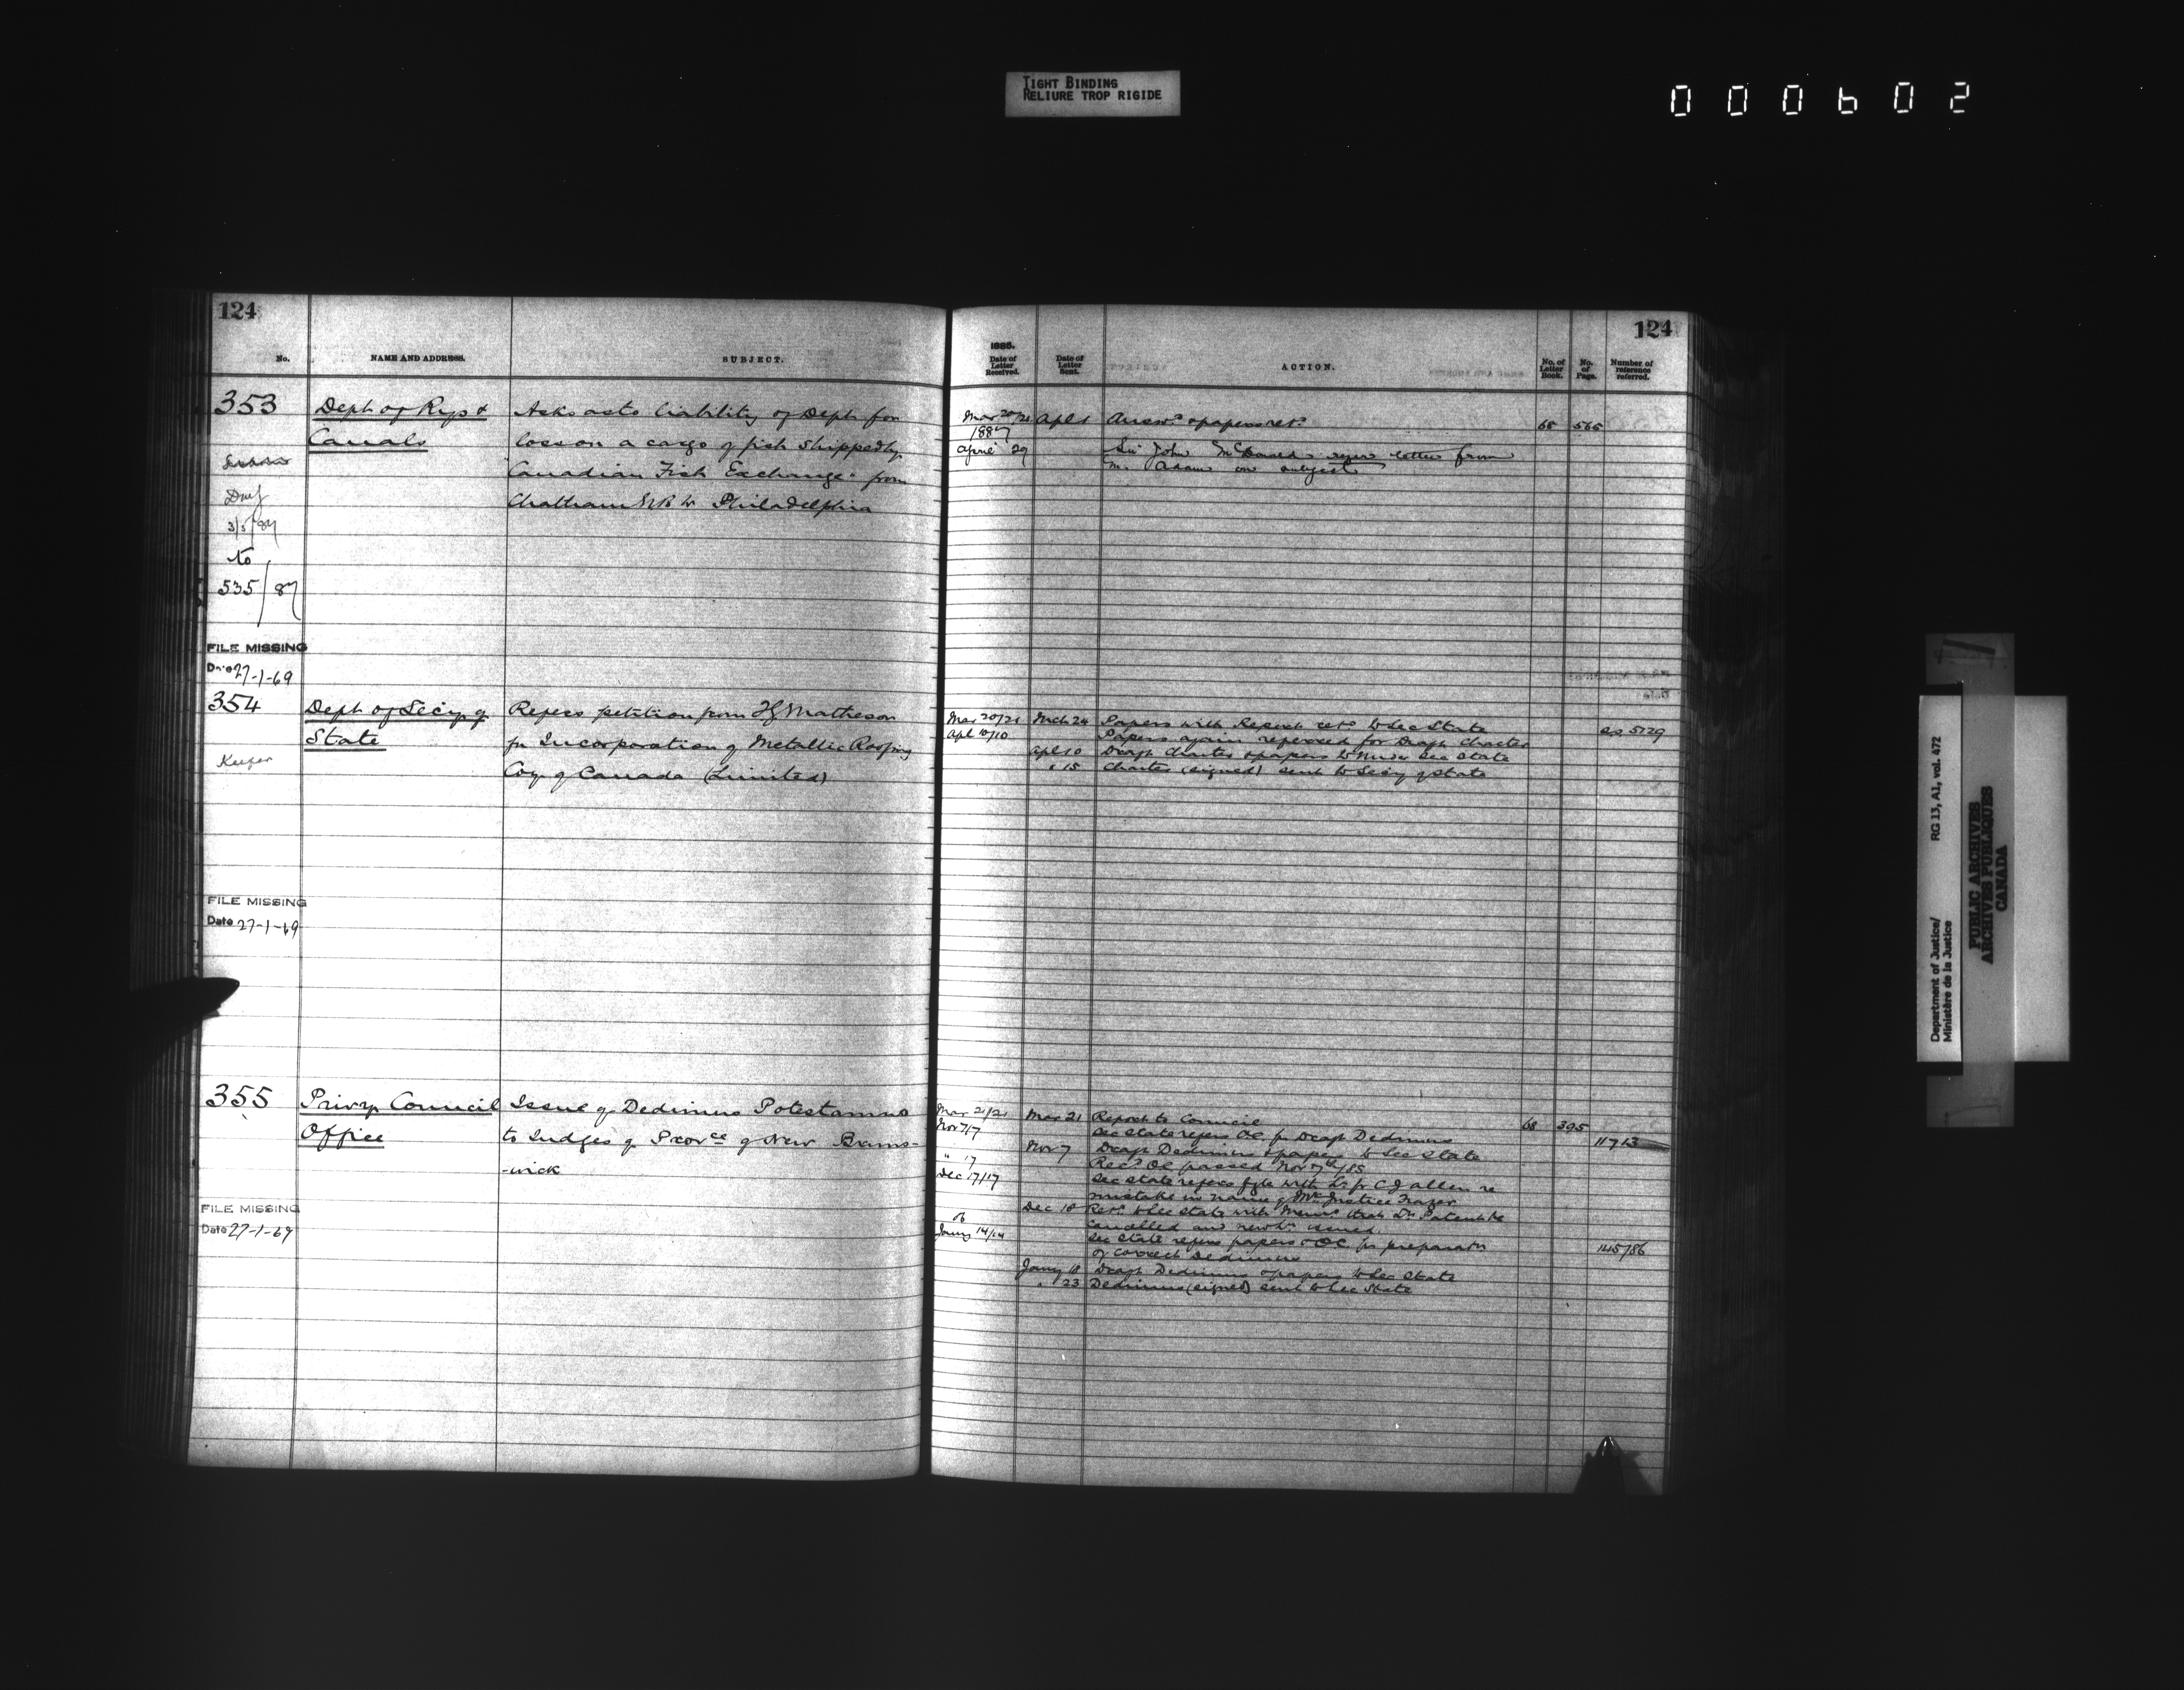 TIGHT BINDING
RELIURE TROP RIGIDE
000602
124
No.
NAME AND ADDRESS.
SUBJECT.
353
Dept of Rys &
Canals
Asks as to liability of Dept for
loss on a cargo of fish shipped by
"Canadian Fish Exchange" from
Chatham N.B. to Philadelphia
3/5/87
to
535/87
FILE MISSING
Date 27-1-69
354
Dept of Secy of
State
Refers petition from Matheson
for Incorporation of Metallic Roofing
Coy of Canada (Limited)
FILE MISSING
Date 27-1-69
355
Privy Council
Office
Issue of Dedimus Potestamus
to Judges of Provce of New Bruns-
-wick
FILE MISSING
Date 27-1-69
124
1885.
Date of Letter Received.
Date of Letter Sent.
ACTION.
No. of Letter Book.
No. of Page.
Number of reference referred.
Mar 20/21 Apl 1 Answd & papers retd 68 565
1887
April 29 Sir John McDonald refers letter from
Mr. Adams on subject
Mar 20/21 Mch 24 Papers with Report retd to Sec State 5729
Apl 10/10 Papers again referred for Draft Charter
Apl 10 Draft Charter & papers to Under Sec State
" 15 Charter (signed) sent to Secy of State
Mar 21/21 Mar 21 Report to Council 68 395
Nov 7/7 Sec State refers OC for Draft Dedimus 11713
Nov 7 Draft Dedimus & papers to Sec State
" 17 Recd OC passed Nov 7th/85
Dec 17/17 Sec State refers fyle with Lr fr C J Allen re
mistake in name of Mr Justice Fraser
Dec 18 Retd to Sec State with Memo that Dr Patent be
cancelled and new issued
86
Jany 14/14 Sec State refers papers & OC for preparatn
of correct Dedimus 145/86
Jany 18 Draft Dedimus & papers to Sec State
" 23 Dedimus (signed) sent to Sec State
Department of Justice/
Ministère de la Justice
RG 13, A1, vol. 472
PUBLIC ARCHIVES
ARCHIVES PUBLIQUES
CANADA